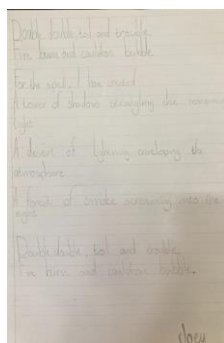 Double double, toil and trouble
Fire burn and cauldron bubble
For the spell I have created
A tower of shadows strangling the
light
A desert of lightning enveloping the
atmosphere
A forest of smoke into the
night
Double double, toil and trouble
Fire burn and cauldron bubble.